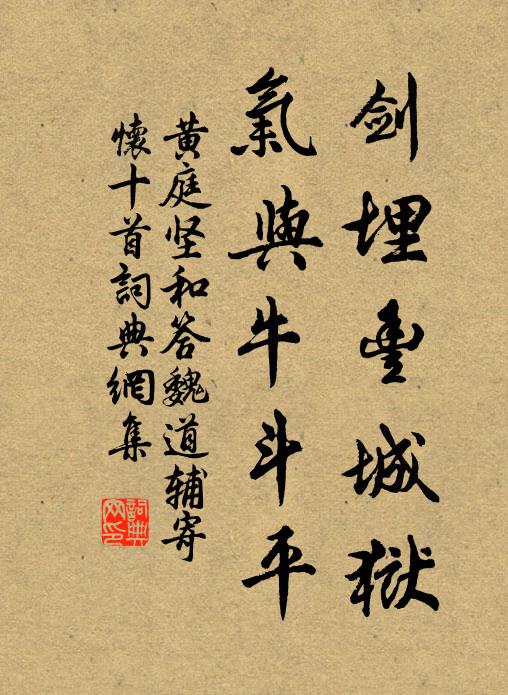 剑埋豊城獄
氣與牛斗平
黄庭坚和答魏道辅寄
懷十首詞典網集
詞典
网印